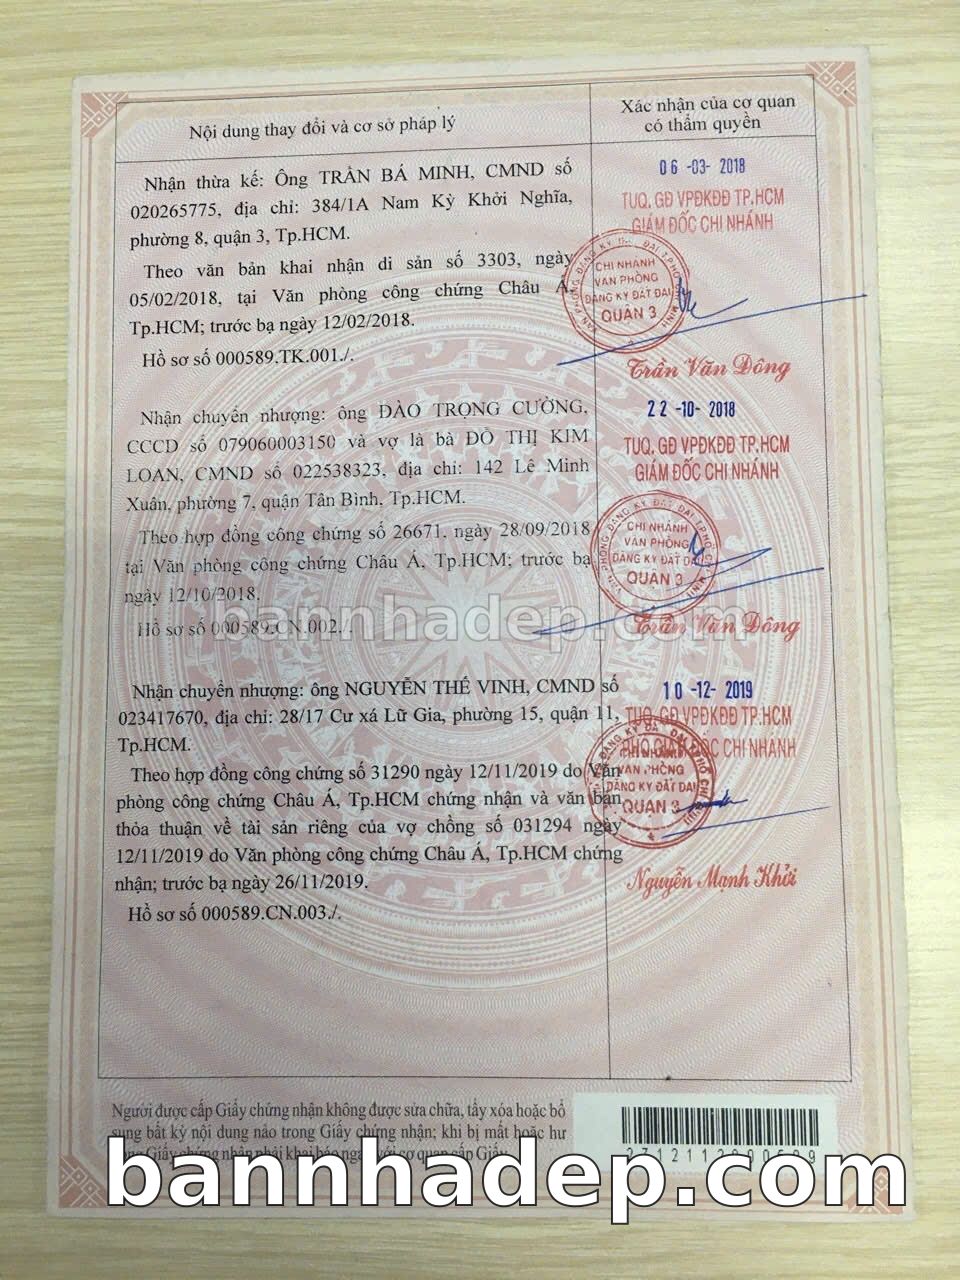 Nội dung thay đổi và cơ sở pháp lý
Xác nhận của cơ quan
có thẩm quyền
Nhận thừa kế: Ông TRẦN BÁ MINH, CMND số
020265775, địa chỉ: 384/1A Nam Kỳ Khởi Nghĩa,
phường 8, quận 3, Tp.HCM.
Theo văn bản khai nhận di sản số 3303, ngày
05/02/2018, tại Văn phòng công chứng Châu Á,
Tp.HCM; trước bạ ngày 12/02/2018.
Hồ sơ số 000589.TK.001./.
06-03-2018
TUQ. GĐ VPĐKĐĐ TP.HCM
GIÁM ĐỐC CHI NHÁNH
VĂN PHÒNG ĐĂNG KÝ ĐẤT ĐAI T.PHỐ CHÍ MINH
CHI NHÁNH
VĂN PHÒNG
ĐĂNG KÝ ĐẤT ĐAI
QUẬN 3
Trần Văn Đông
Nhận chuyển nhượng: ông ĐÀO TRỌNG CƯỜNG,
CCCD số 079060003150 và vợ là bà ĐỖ THỊ KIM
LOAN, CMND số 022538323, địa chỉ: 142 Lê Minh
Xuân, phường 7, quận Tân Bình, Tp.HCM.
Theo hợp đồng công chứng số 26671, ngày 28/09/2018
tại Văn phòng công chứng Châu Á, Tp.HCM; trước bạ
ngày 12/10/2018.
Hồ sơ số 000589.CN.002./.
22-10-2018
TUQ. GĐ VPĐKĐĐ TP.HCM
GIÁM ĐỐC CHI NHÁNH
VĂN PHÒNG ĐĂNG KÝ ĐẤT ĐAI T.PHỐ CHÍ MINH
CHI NHÁNH
VĂN PHÒNG
ĐĂNG KÝ ĐẤT ĐAI
QUẬN 3
Trần Văn Đông
bannhadep.com
Nhận chuyển nhượng: ông NGUYỄN THẾ VINH, CMND số
023417670, địa chỉ: 28/17 Cư xá Lữ Gia, phường 15, quận 11,
Tp.HCM.
Theo hợp đồng công chứng số 31290 ngày 12/11/2019 do Văn
phòng công chứng Châu Á, Tp.HCM chứng nhận và văn bản
thỏa thuận về tài sản riêng của vợ chồng số 031294 ngày
12/11/2019 do Văn phòng công chứng Châu Á, Tp.HCM chứng
nhận; trước bạ ngày 26/11/2019.
Hồ sơ số 000589.CN.003./.
10-12-2019
TUQ. GĐ VPĐKĐĐ TP.HCM
PHÓ GIÁM ĐỐC CHI NHÁNH
CHI NHÁNH
VĂN PHÒNG
ĐĂNG KÝ ĐẤT ĐAI
QUẬN 3
Nguyễn Mạnh Khởi
Người được cấp Giấy chứng nhận không được sửa chữa, tẩy xóa hoặc bổ
sung bất kỳ nội dung nào trong Giấy chứng nhận; khi bị mất hoặc hư
Giấy chứng nhận phải khai báo ngay với cơ quan cấp Giấy.
bannhadep.com